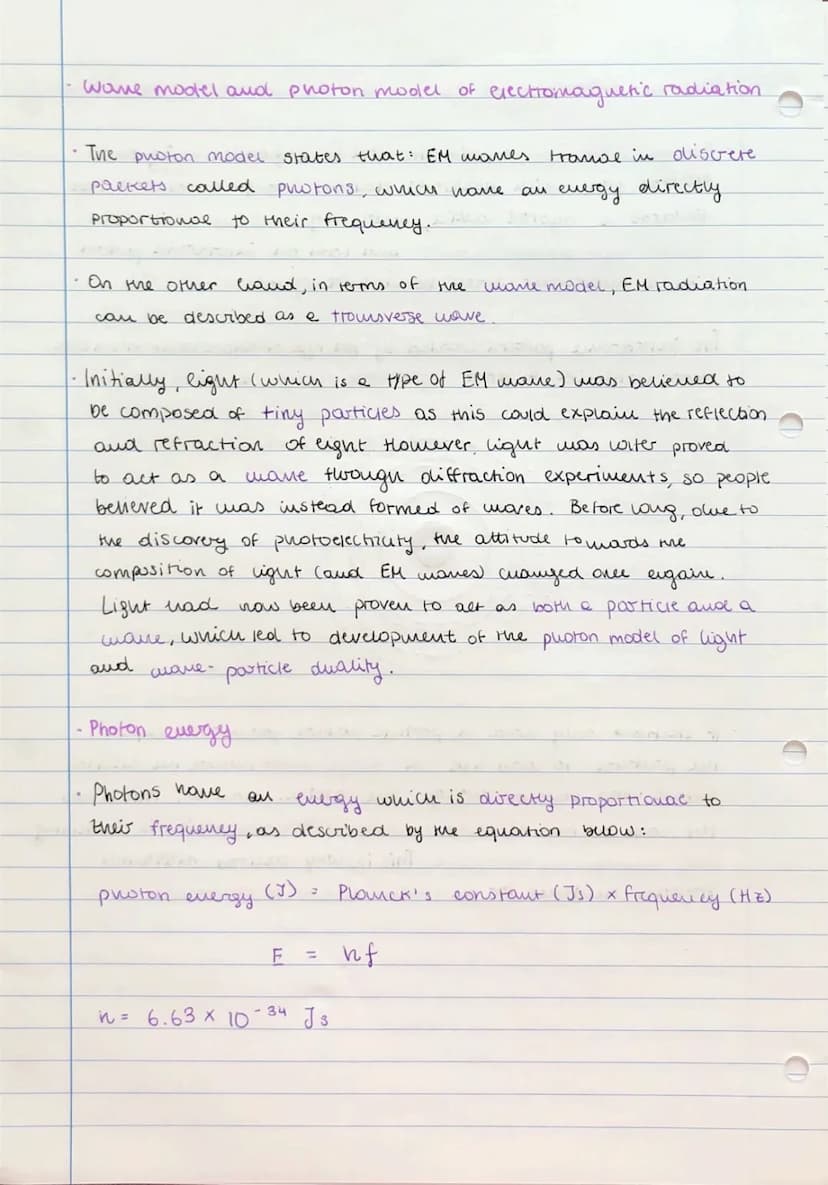 - Wave model and photon model of electromagnetic radiation
· The photon model states that: EM waves travel in discrete
packets called photons, which have an energy directly
proportional to their frequency.
· On the other hand, in terms of the wave model, EM radiation
can be described as a transverse wave.
· Initially, light (which is a type of EM wave) was believed to
be composed of tiny particles as this could explain the reflection
and refraction of light However, light was later proved
to act as a wave through diffraction experiments, so people
believed it was instead formed of waves. Before long, due to
the discovery of photoelectricity, the attitude towards the
composition of light (and EM waves) changed once again.
Light had now been proven to act as both a particle and a
wave, which led to development of the photon model of light
and wave-particle duality.
- Photon energy
· Photons have an energy which is directly proportional to
their frequency, as described by the equation below:
photon energy (J) = Planck's constant (Js) × frequency (Hz)
E = hf
h = 6.63 × 10⁻³⁴ Js